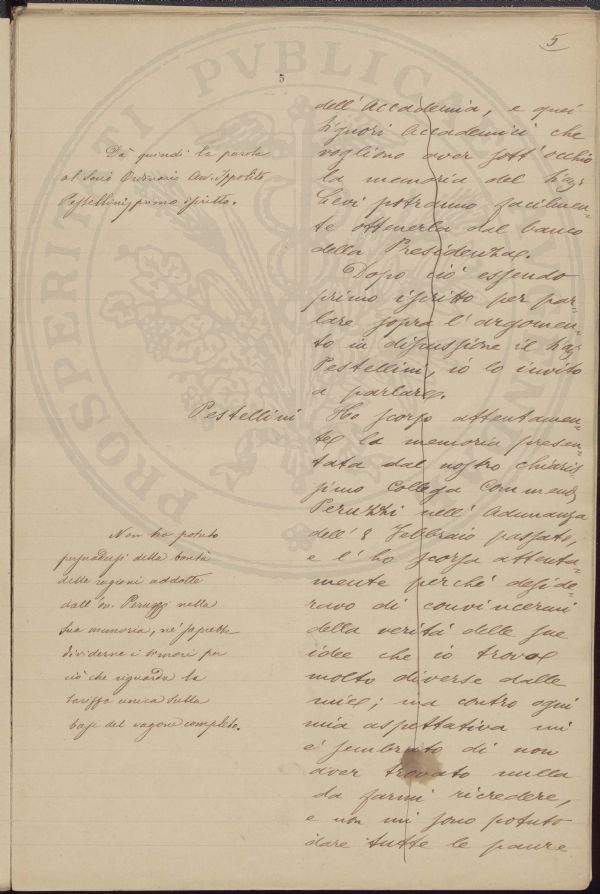 5
5
dell'Accademia, e quei
Signori Accademici che
vogliono aver sott'occhio
la memoria del Sig.
Levi potranno facilmen-
te ottenerla dal banco
della Presidenza.
Dopo ciò essendo
primo iscritto per par-
lare sopra l'argomen-
to in discussione il Sig.
Pestellini, io lo invito
a parlare.
Dà quindi la parola
al Socio Ordinario Avv. Ippolito
Pestellini, primo iscritto.
Pestellini
Ho scorso attentamen-
te la memoria presen-
tata dal nostro chiaris
simo Collega Commend
Peruzzi nell'Adunanza
dell'8 Febbraio passato,
e l'ho scorsa attenta-
mente perchè deside-
ravo di convincermi
della verità delle sue
idee che io trovo
molto diverse dalle
mie; ma contro ogni
mia aspettativa mi
è sembrato di non
aver trovato nulla
da farmi ricredere,
e non mi sono potuto
dare tutte le paure
Non ha potuto
persuadersi della bontà
delle ragioni addotte
dall'on. Peruzzi nella
sua memoria, nè saprebbe
dividerne i timori per
ciò che riguarda la
tariffa unica sulla
base del vagone completo.
PROSPERITATI PVBLICAE AVGENDAE